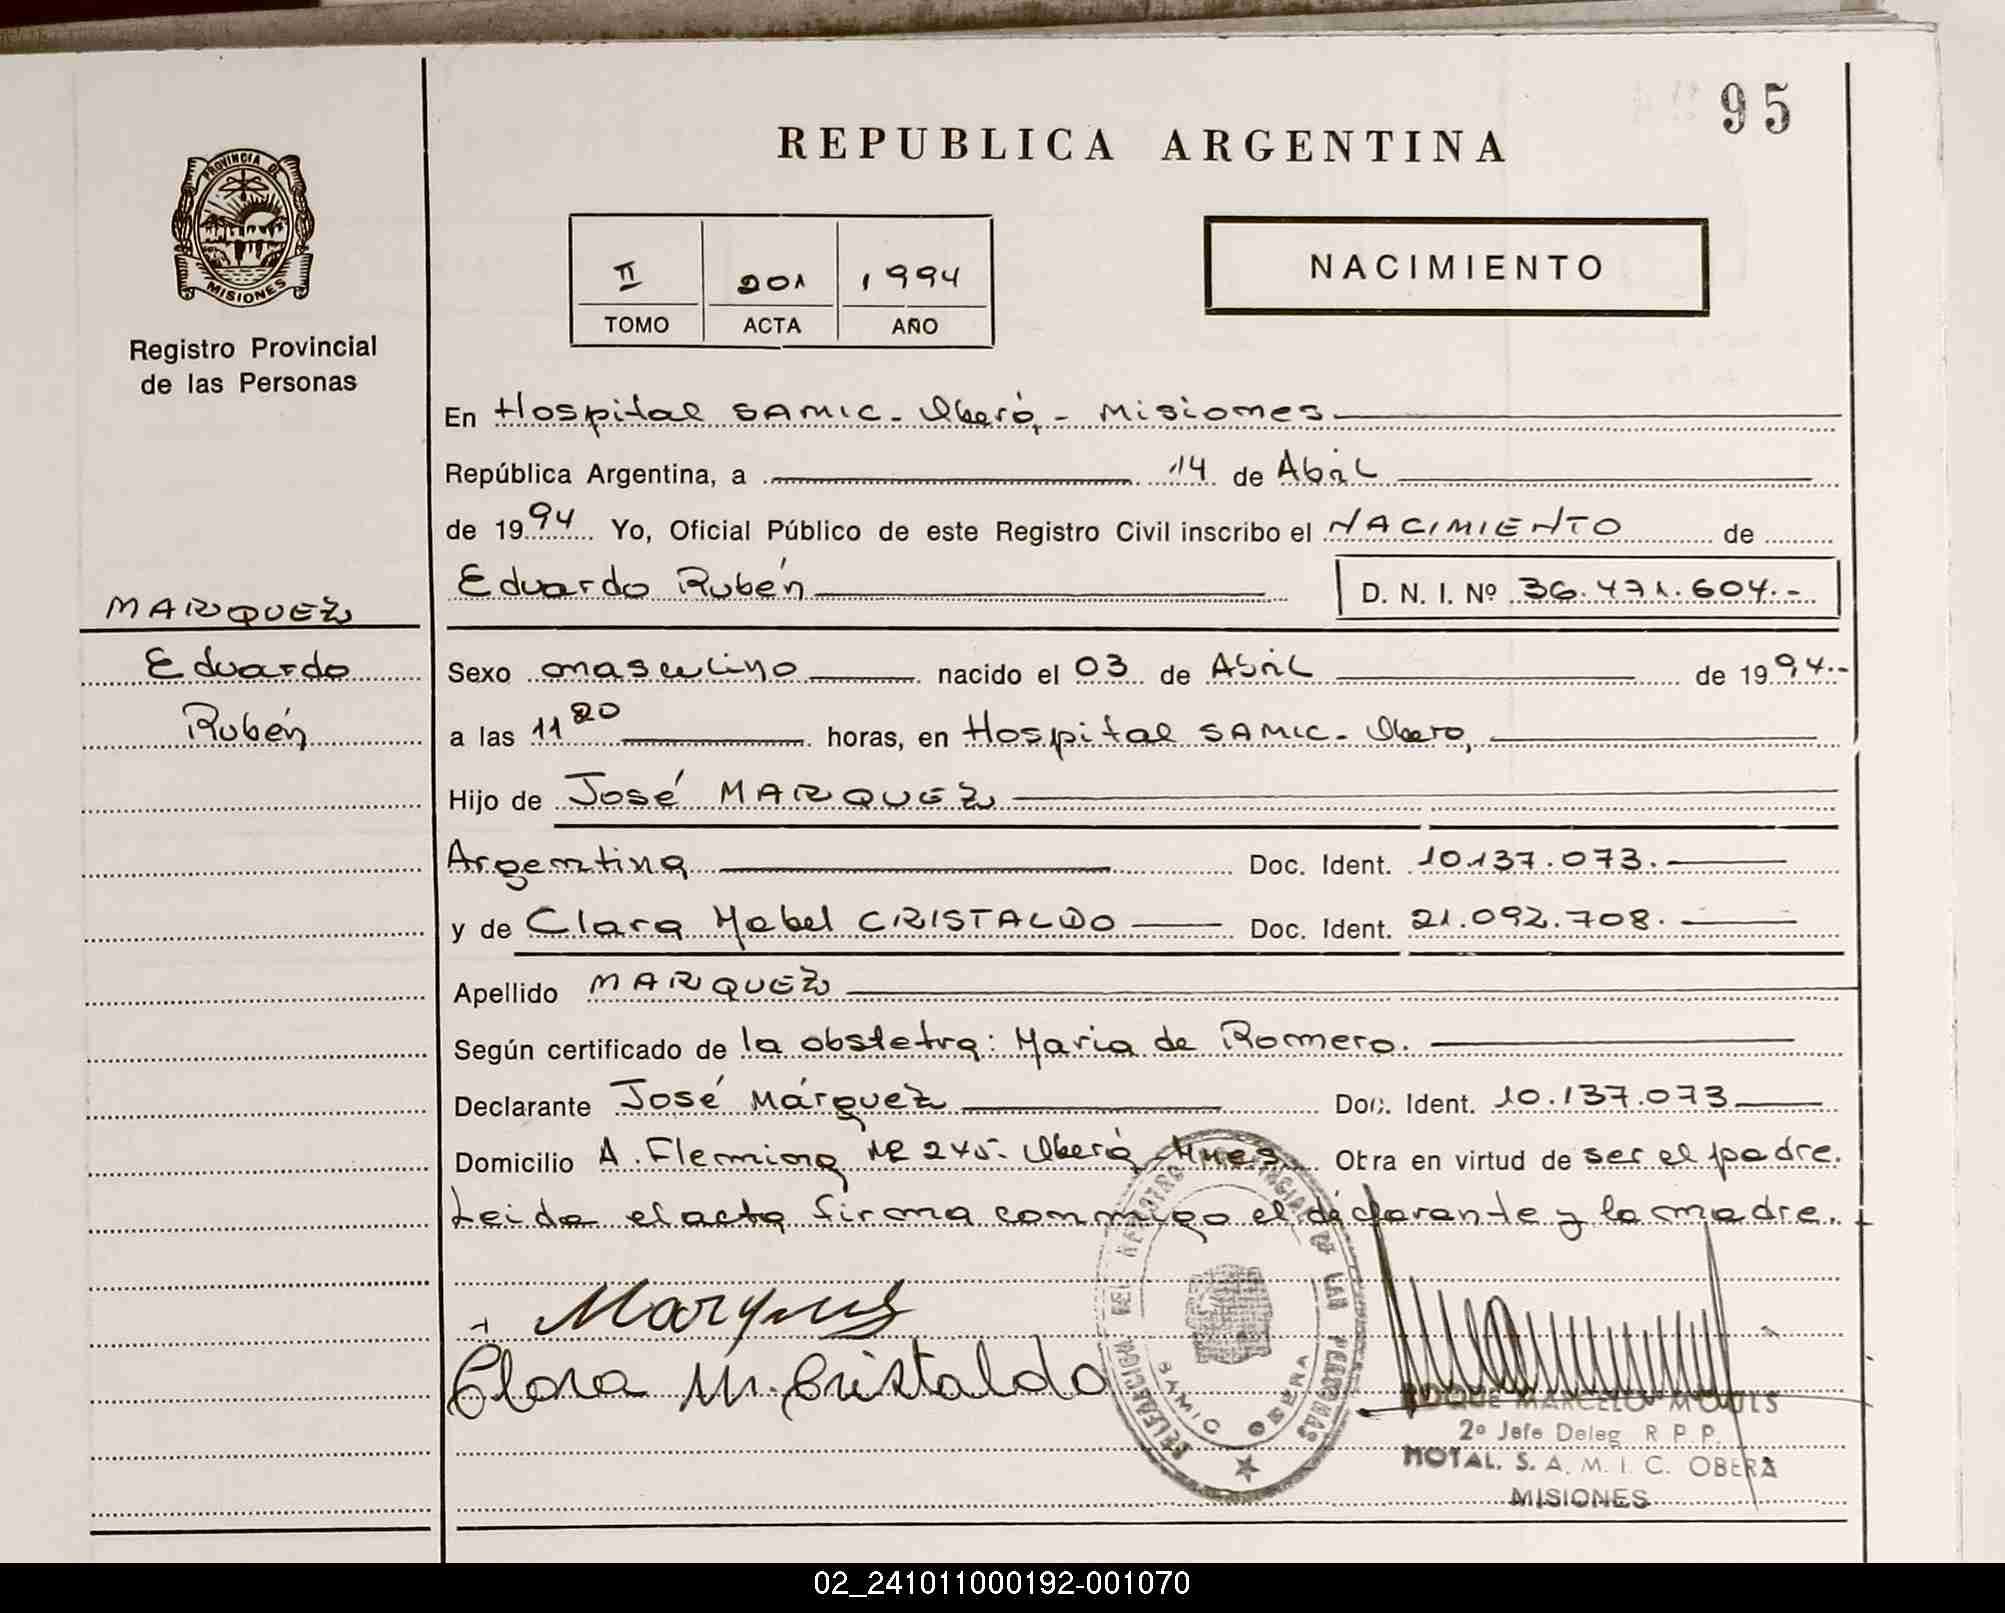 95
REPUBLICA ARGENTINA
PROVINCIA DE
MISIONES
Registro Provincial
de las Personas
II 201 1994
TOMO ACTA AÑO
NACIMIENTO
En Hospital SAMIC - Oberá, - Misiones
República Argentina, a 14 de Abril
de 1994 Yo, Oficial Público de este Registro Civil inscribo el NACIMIENTO de
Eduardo Rubén D. N. I. Nº 36.471.604.-
MARQUEZ
Eduardo
Rubén
Sexo masculino nacido el 03 de Abril de 1994.-
a las 11 20 horas, en Hospital SAMIC - Obera,
Hijo de José MARQUEZ
Argentina Doc. Ident. 10.137.073.
y de Clara Mabel CRISTALDO Doc. Ident. 21.092.708.
Apellido MARQUEZ
Según certificado de la obstetra: Maria de Romero.
Declarante José Márquez Doc. Ident. 10.137.073
Domicilio A. Fleming Nº 245 - Oberá - Mnes Obra en virtud de ser el padre.
Leida el acta firma conmigo el declarante y la madre.
Marques
Clara M. Cristaldo
DELEGACION DEL REGISTRO PROVINCIAL DE LAS PERSONAS
SAMIC OBERA
ROQUE MARCELO
2º Jefe Deleg. R. P. P.
HOTAL. S. A. M. I. C. OBERA
MISIONES
02_241011000192-001070